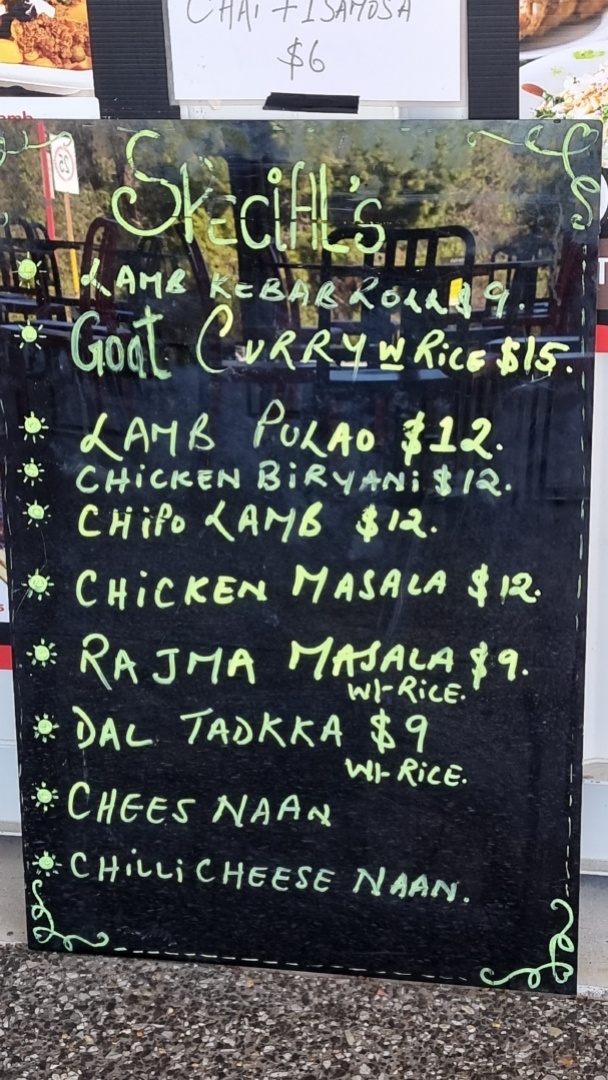 CHAI + 1 SAMOSA
$6
SPECiAL's
LAMB KEBAB ROLL $9.
Goat CURRY W RicE $15.
LAMB PULAO $12.
CHiCKEN BiRYANi $12.
CHiPO LAMB $12.
CHiCKEN MASALA $12.
RAJMA MASALA $9.
WI-RiCE.
DAL TADKKA $9
WI-RiCE.
CHEES NAAN
CHiLLi CHEESE NAAN.